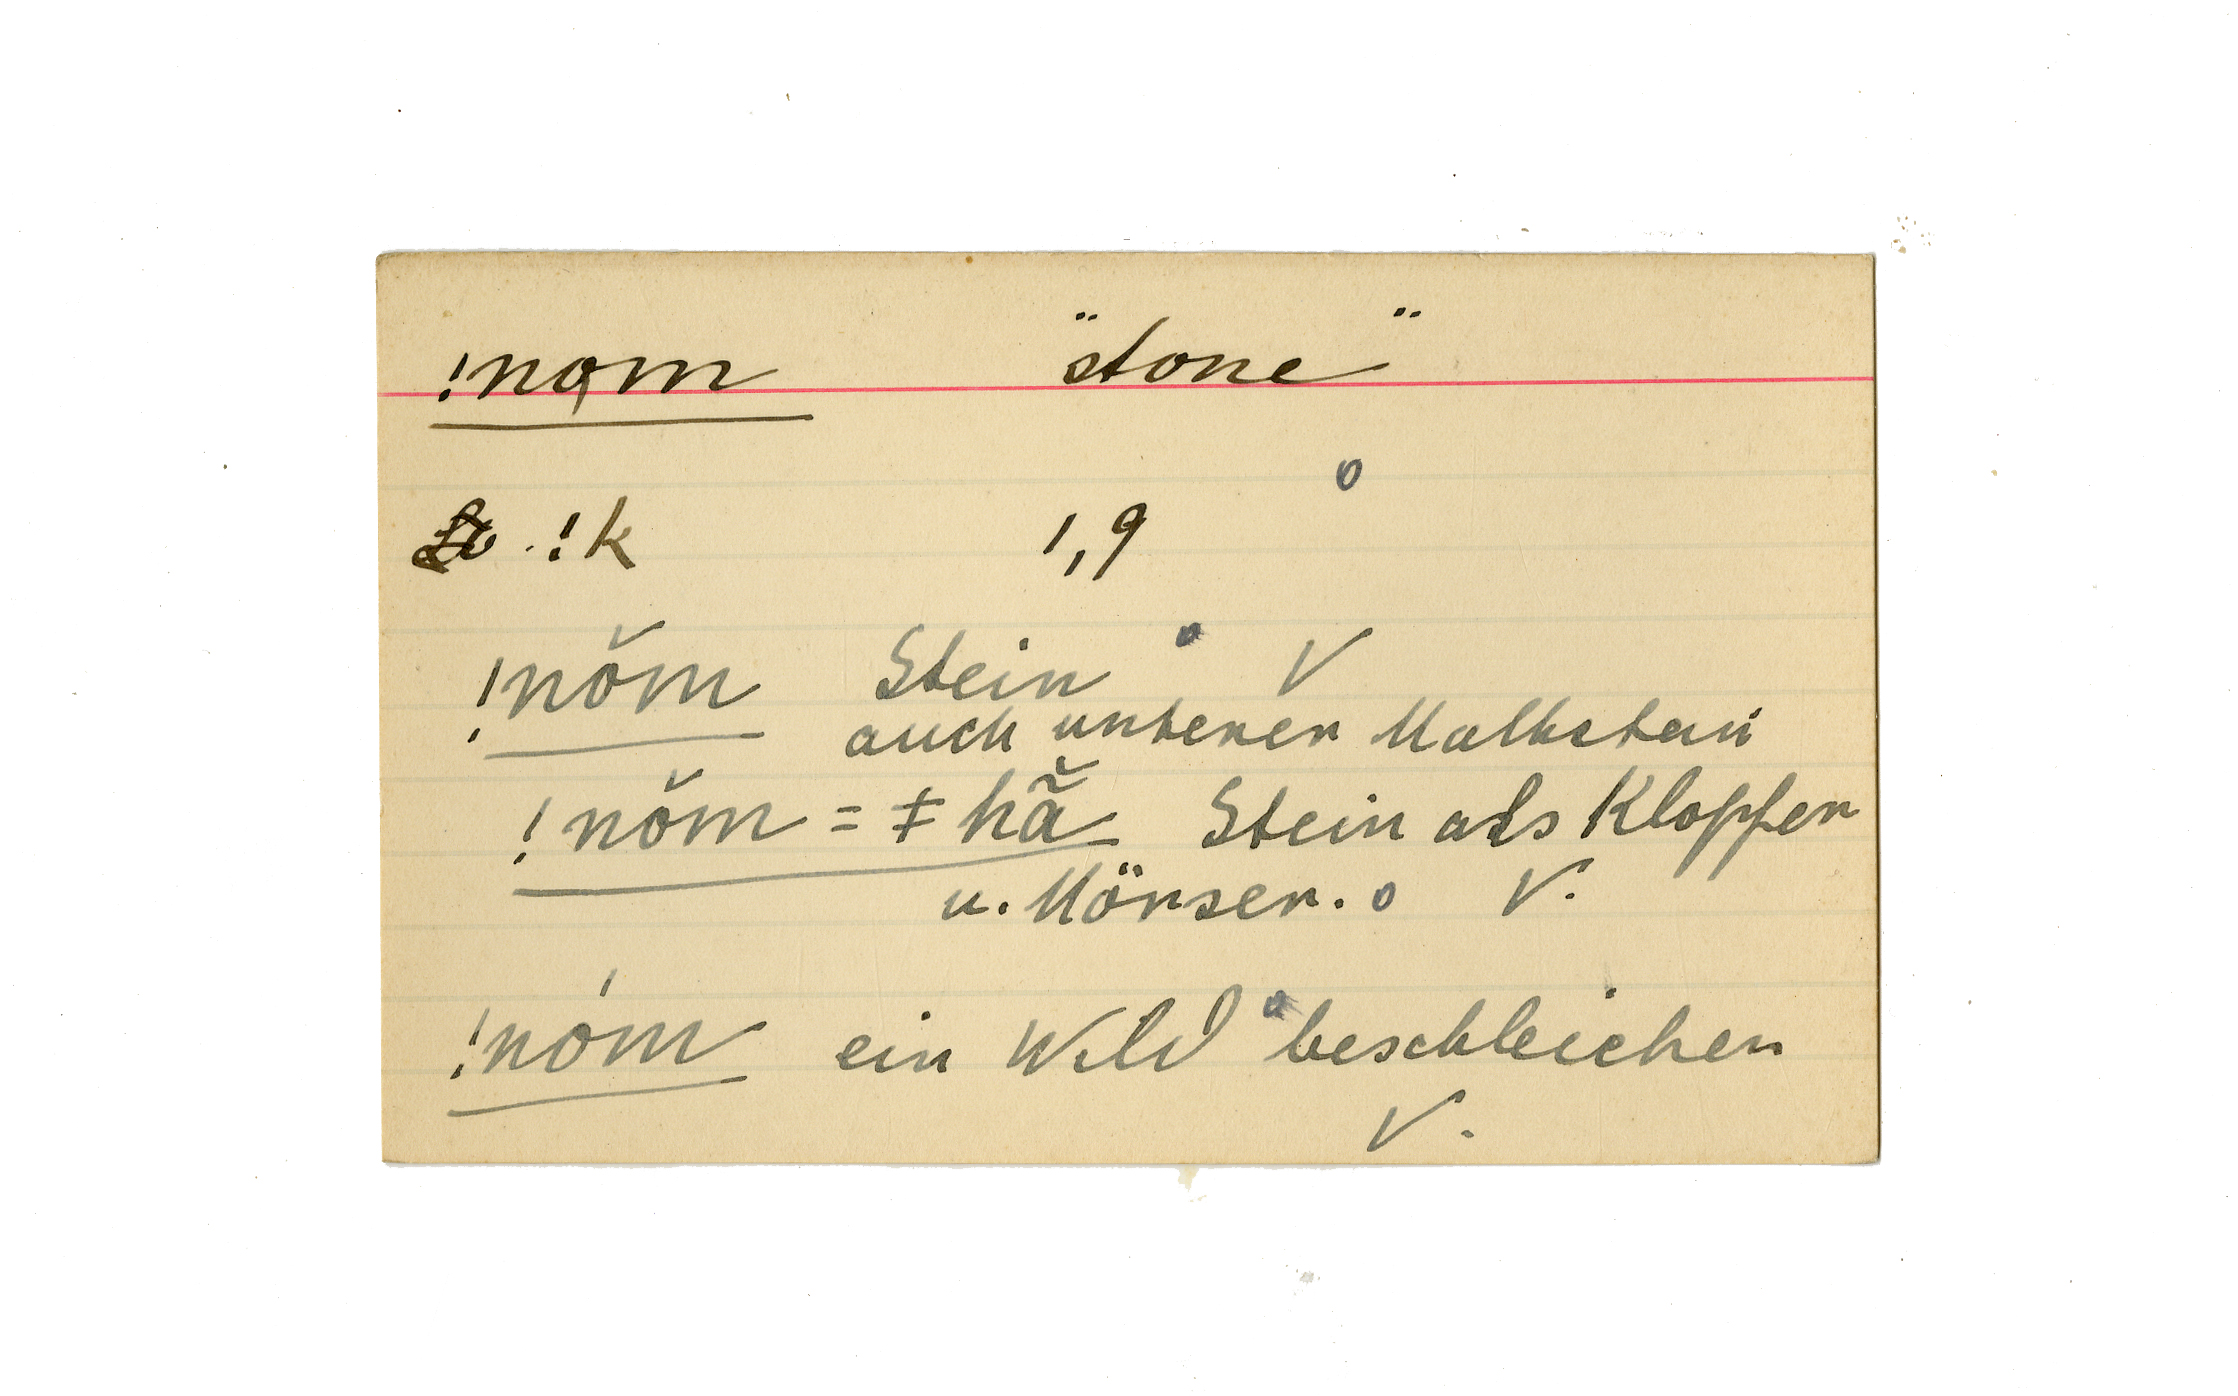 !nọm "stone"
o
!k 1,9
!nŏm Stein o V
auch unterer
!nŏm = ǂhã̆ Stein als Klopfer
u. Mörser. o V.
!nóm ein Wild o beschleichen
V.